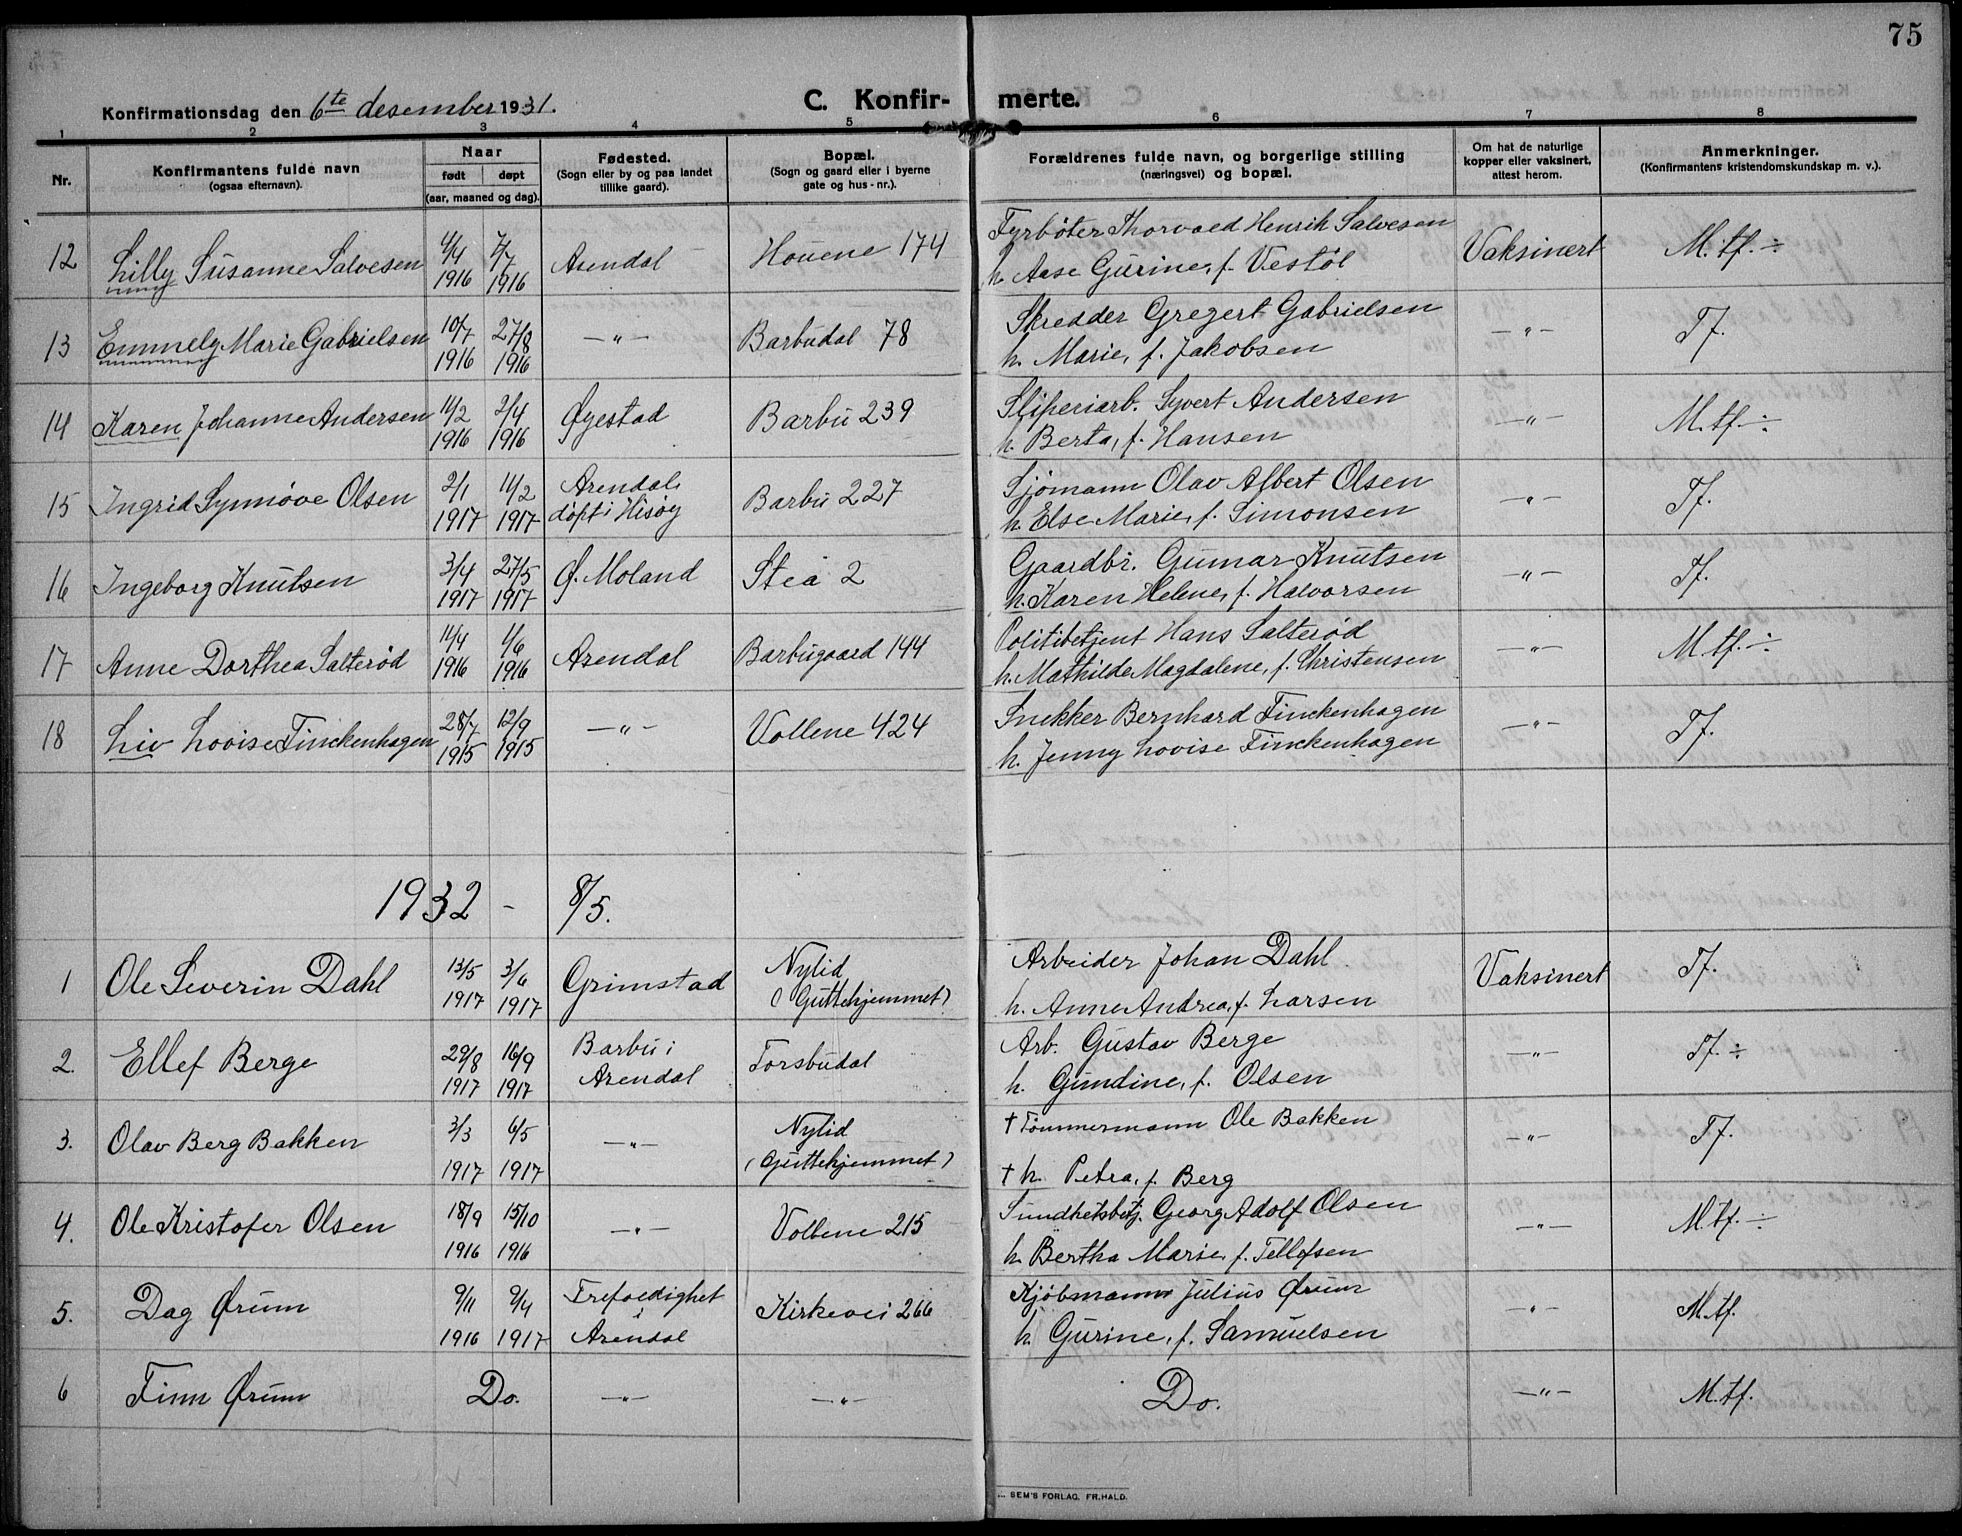 75
Konfirmationsdag den 6te desember 1931.
C. Konfir- merte.
1 2 3 4 5 6 7 8
Nr.
Konfirmantens fulde navn
(ogsaa efternavn).
Naar
født døpt
(aar, maaned og dag).
Fødested.
(Sogn eller by og paa landet
tillike gaard).
Bopæl.
(Sogn og gaard eller i byerne
gate og hus-nr.).
Forældrenes fulde navn, og borgerlige stilling
(næringsvei) og bopæl.
Om hat de naturlige
kopper eller vaksinert,
attest herom.
Anmerkninger.
(Konfirmantens kristendomskundskap m. v.).
12 Lilly Susanne Salvesen 4/4 1916 7/7 1916 Arendal Houene 174 Fyrbøter Thorvald Henrik Salvesen Vaksinert M.tf. ÷
h. Aase Gurine, f. Vestøl
13 Emmely Marie Gabrielsen 10/7 1916 27/8 1916 —"— Barbudal 78 Skredder Gregert Gabrielsen —"— Tf.
h. Marie, f. Jakobsen
14 Karen Johanne Andersen 11/2 1916 2/4 1916 Øyestad Barbu 239 Sliperiarb. Syvert Andersen —"— M.tf. ÷
h. Berta, f. Hansen
15 Ingrid Synnøve Olsen 2/1 1917 11/2 1917 Arendal, Barbu 227 Sjømann Olav Albert Olsen —"— Tf.
døpt i Hisøy h. Else Marie, f. Simonsen
16 Ingeborg Knutsen 3/4 1917 27/5 1917 Ø. Moland Stea 2 Gaardbr. Gunnar Knutsen —"— Tf.
h. Karen Helene, f. Halvorsen
17 Anne Dorthea Salterød 11/4 1916 1/6 1916 Arendal Barbugaard 144 Politibetjent Hans Salterød —"— M.tf. ÷
h. Mathilde Magdalene, f. Christensen
18 Liv Lovise Finckenhagen 28/7 1915 12/9 1915 —"— Vollene 424 Snekker Bernhard Finckenhagen —"— Tf.
h. Jenny Lovise Finckenhagen
1932 - 8/5.
1 Ole Severin Dahl 13/5 1917 3/6 1917 Grimstad Nylid Arbeider Johan Dahl. Vaksinert Tf.
(Guttehjemmet) h. Anne Andrea, f. Larsen
2. Ellef Berge 29/8 1917 16/9 1917 Barbu i Torsbudal Arb. Gustav Berge —"— Tf. ÷
Arendal h. Gundine, f. Olsen
3. Olav Berg Bakken 3/3 1917 6/5 1917 —"— Nylid † Tømmermann Ole Bakken —"— Tf.
(Guttehjemmet) † h. Petra, f. Berg
4. Ole Kristofer Olsen 18/9 1916 15/10 1916 —"— Vollene 215 Sundhetsbetj. Georg Adolf Olsen —"— M.tf. ÷
h. Bertha Marie, f. Tellefsen
5. Dag Ørum 9/11 1916 9/4 1917 Trefoldighet Kirkevei 266 Kjøbmann Julius Ørum —"— M.tf.
Arendal h. Gurine, f. Samuelsen
6 Finn Ørum Do. —"— —"— Do. —"— M.tf.
SEM'S FORLAG, FR.HALD.